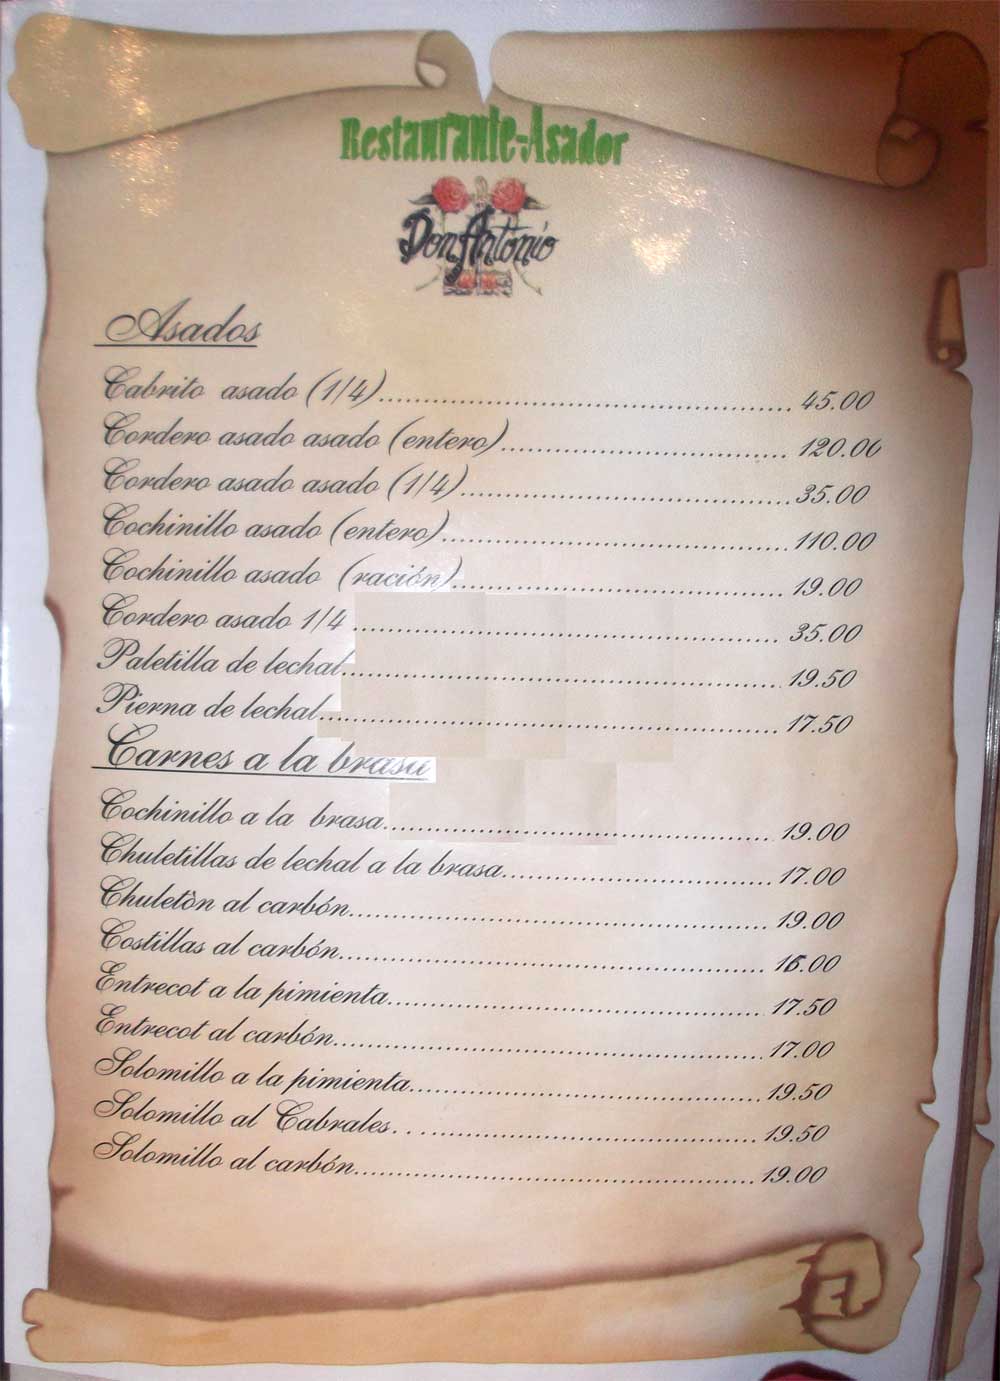 Restaurante-Asador
Don Antonio
Asados
Cabrito asado (1/4)........................................................ 45.00
Cordero asado asado (entero)....................................... 120.00
Cordero asado asado (1/4)............................................. 35.00
Cochinillo asado (entero)............................................... 110.00
Cochinillo asado (ración)............................................. 19.00
Cordero asado 1/4 ........................................................... 35.00
Paletilla de lechal............................................................ 19.50
Pierna de lechal............................................................... 17.50
Carnes a la brasa
Cochinillo a la brasa..................................................... 19.00
Chuletillas de lechal a la brasa..................................... 17.00
Chuletòn al carbón.......................................................... 19.00
Costillas al carbón........................................................... 16.00
Entrecot a la pimienta.................................................... 17.50
Entrecot al carbón............................................................ 17.00
Solomillo a la pimienta................................................. 19.50
Solomillo al Cabrales. . ................................................ 19.50
Solomillo al carbón......................................................... 19.00